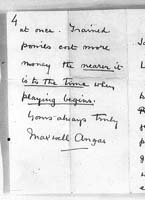 4
at once. Trained
ponies cost more
money the nearer it
is to the time when
playing begins.
Yours always truly
Maxwell Angas